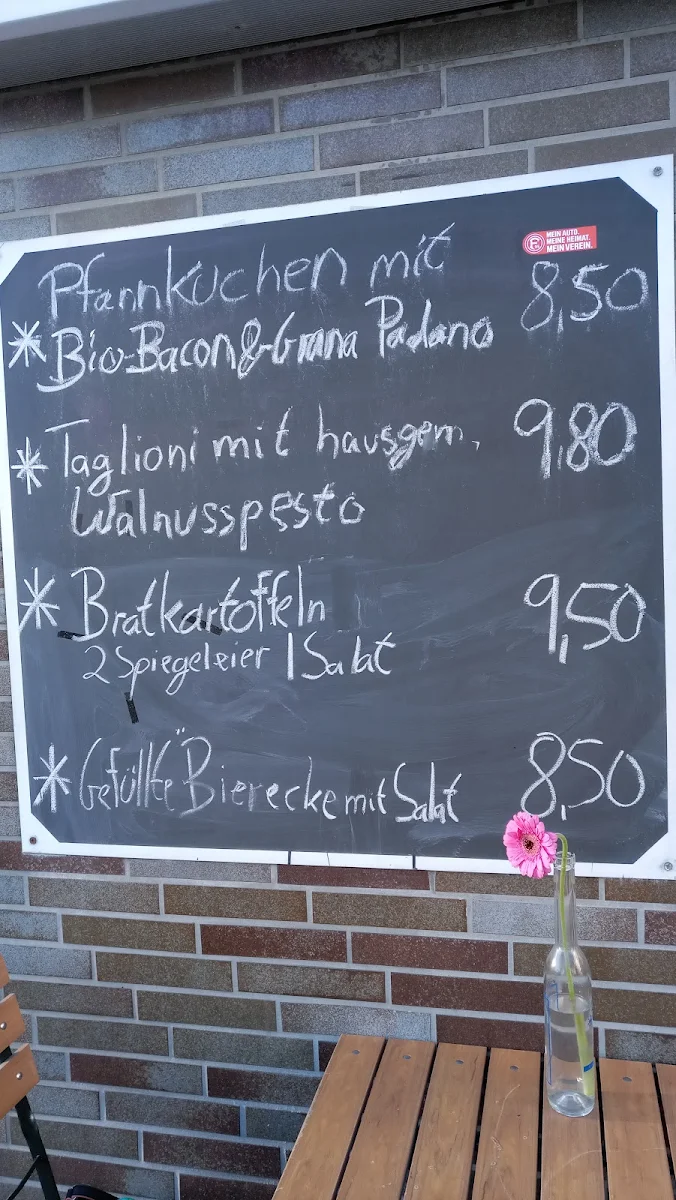 Pfannkuchen mit 8,50
* Bio-Bacon & Grana Padano
* Taglioni mit hausgem. 9,80
Walnusspesto
* Bratkartoffeln 9,50
2 Spiegeleier 1 Salat
* Gefüllte "Bierecke mit Salat 8,50
MEIN AUTO.
MEINE HEIMAT.
MEIN VEREIN.